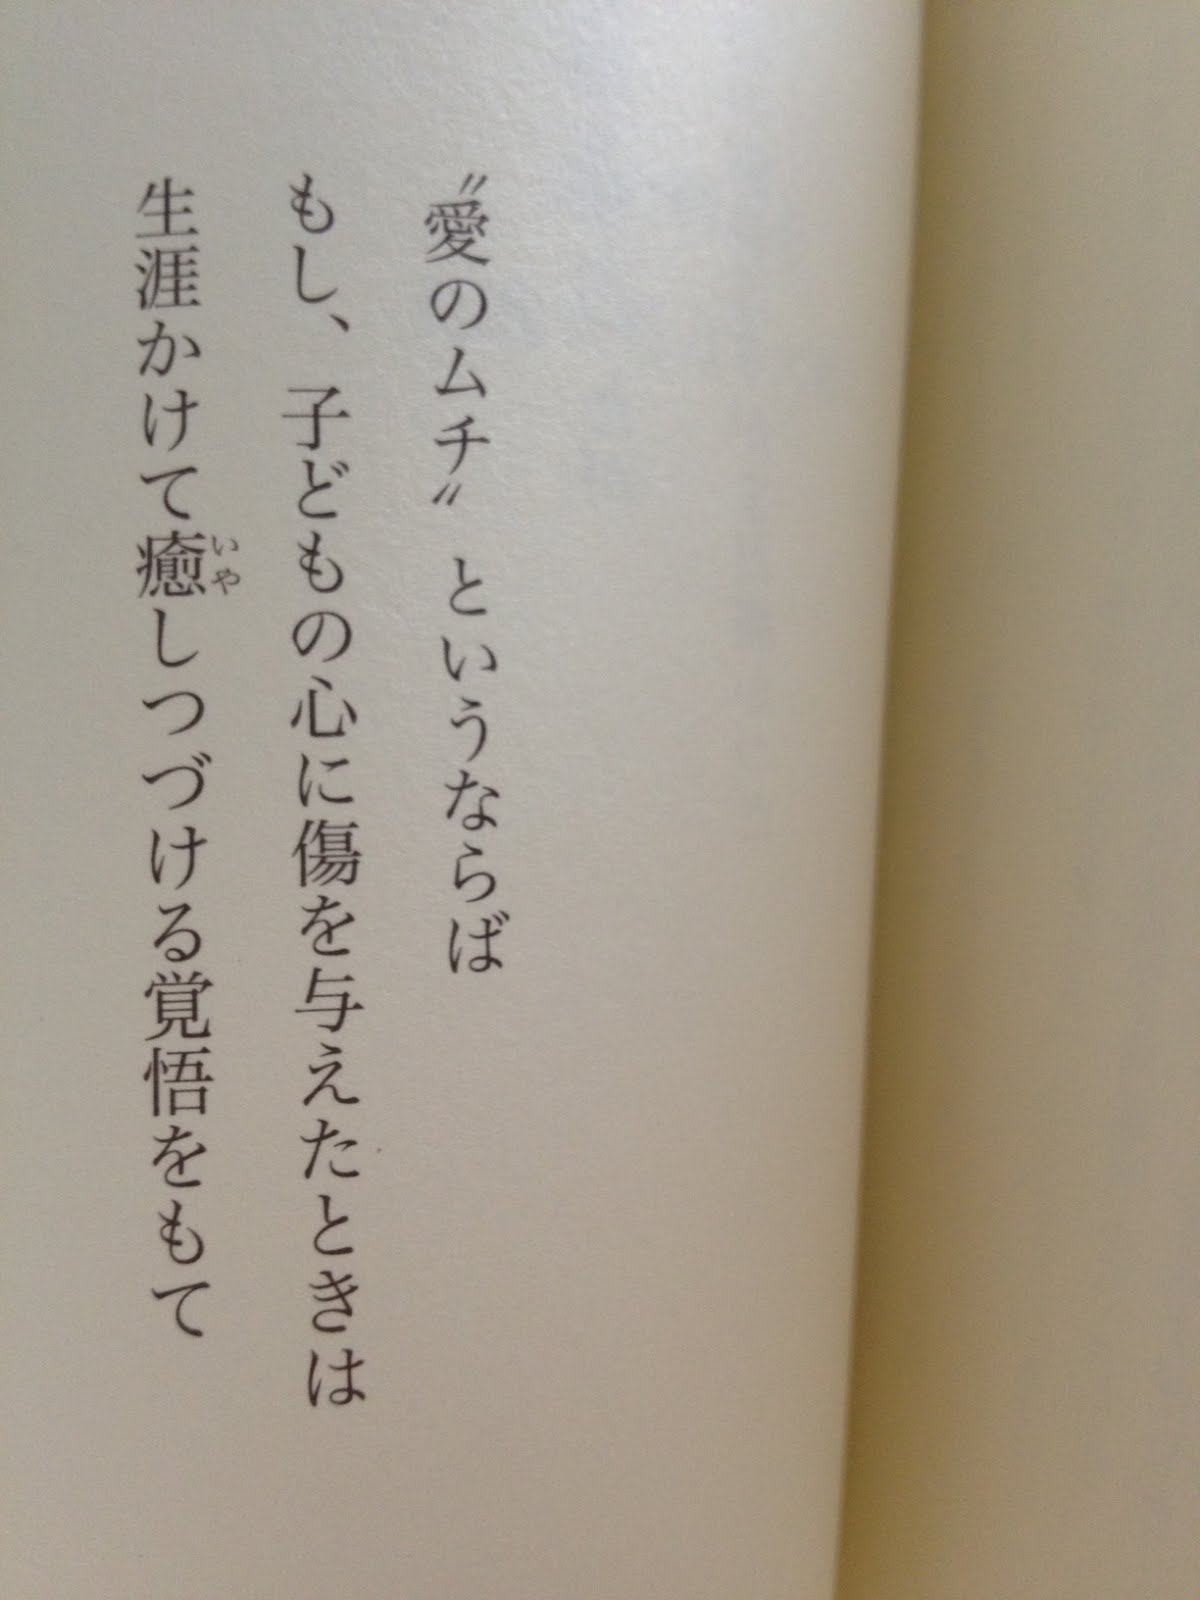 〝愛のムチ〟というならば
もし、子どもの心に傷を与えたときは
生涯かけて癒しつづける覚悟をもて
いや